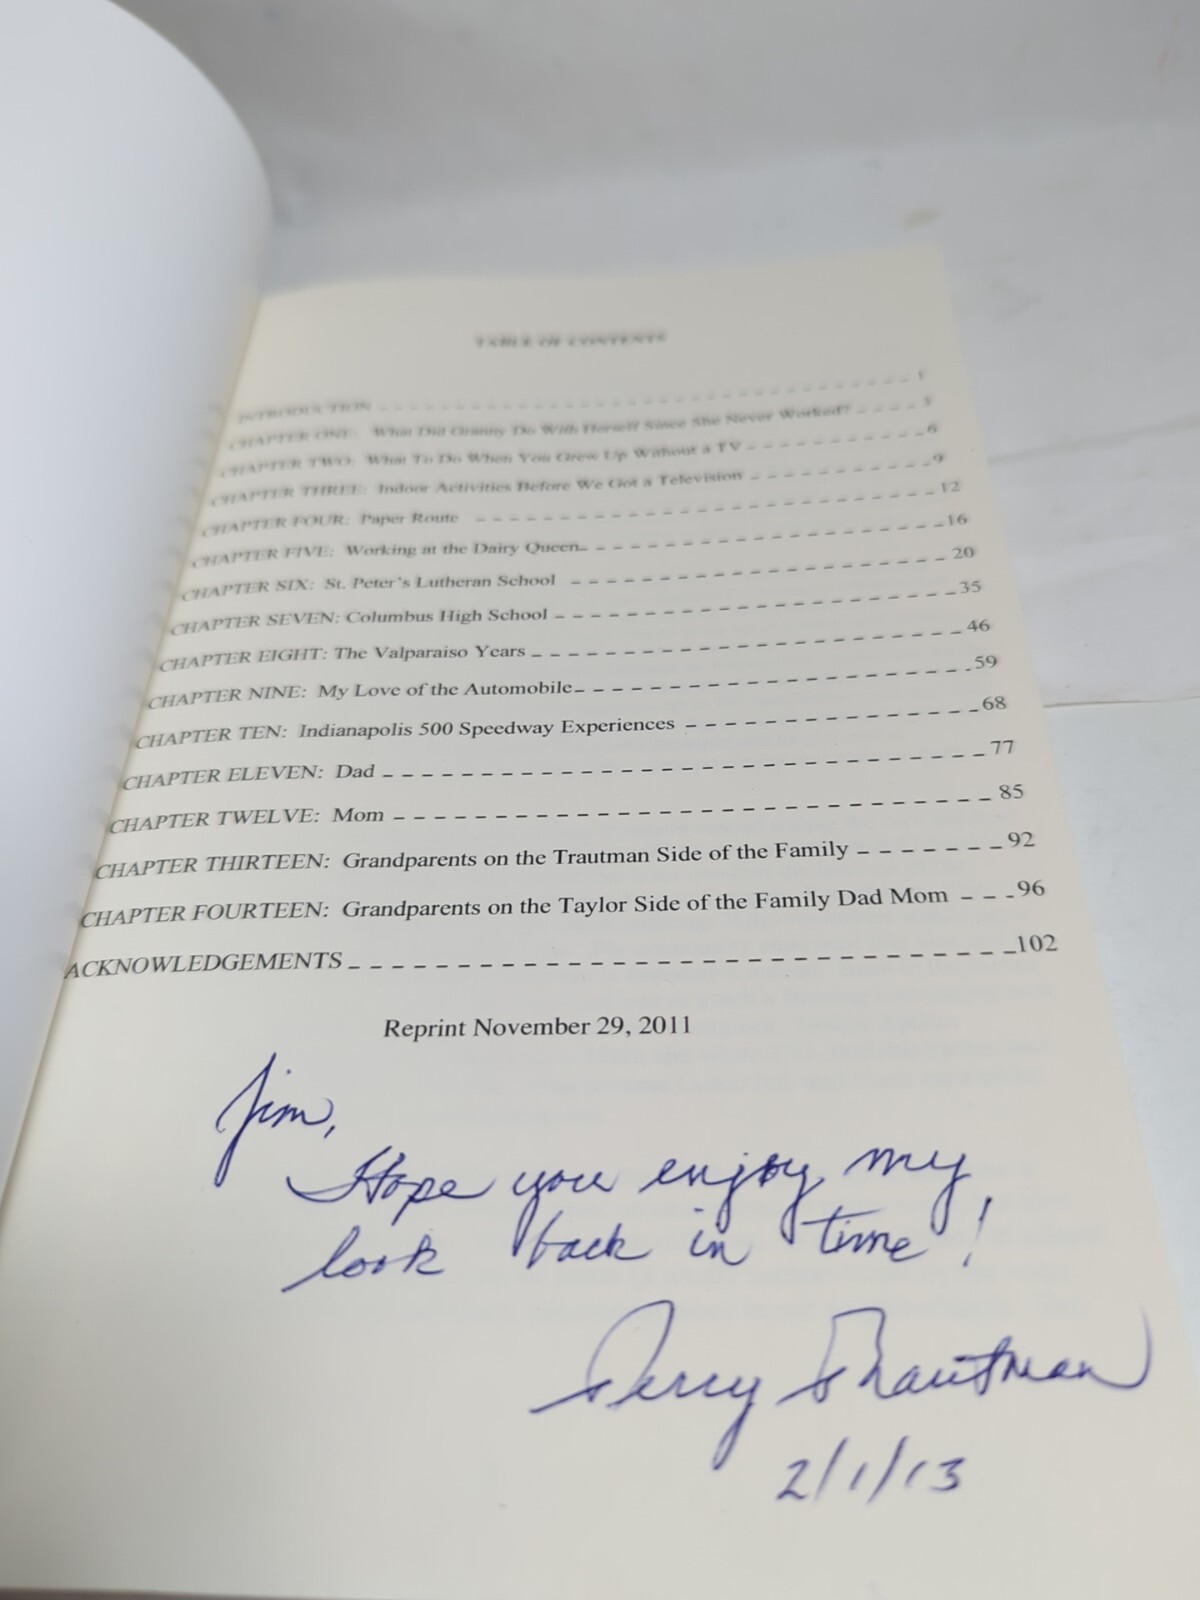 TABLE OF CONTENTS
INTRODUCTION _ _ _ _ _ _ _ _ _ _ _ _ _ _ _ _ _ _ _ _ _ _ _ _ _ _ _ _ _ _ 1
CHAPTER ONE: What Did Granny Do With Herself Since She Never Worked? _ _ _ _ 3
CHAPTER TWO: What To Do When You Grew Up Without a TV _ _ _ _ _ _ _ _ _ _ 6
CHAPTER THREE: Indoor Activities Before We Got a Television _ _ _ _ _ _ _ _ _ _ 9
CHAPTER FOUR: Paper Route _ _ _ _ _ _ _ _ _ _ _ _ _ _ _ _ _ _ _ _ _ _ _ _ _ 12
CHAPTER FIVE: Working at the Dairy Queen _ _ _ _ _ _ _ _ _ _ _ _ _ _ _ _ _ _ _ 16
CHAPTER SIX: St. Peter's Lutheran School _ _ _ _ _ _ _ _ _ _ _ _ _ _ _ _ _ _ _ 20
CHAPTER SEVEN: Columbus High School _ _ _ _ _ _ _ _ _ _ _ _ _ _ _ _ _ _ _ _ 35
CHAPTER EIGHT: The Valparaiso Years _ _ _ _ _ _ _ _ _ _ _ _ _ _ _ _ _ _ _ _ _ 46
CHAPTER NINE: My Love of the Automobile _ _ _ _ _ _ _ _ _ _ _ _ _ _ _ _ _ _ _ 59
CHAPTER TEN: Indianapolis 500 Speedway Experiences _ _ _ _ _ _ _ _ _ _ _ _ _ 68
CHAPTER ELEVEN: Dad _ _ _ _ _ _ _ _ _ _ _ _ _ _ _ _ _ _ _ _ _ _ _ _ _ _ _ _ 77
CHAPTER TWELVE: Mom _ _ _ _ _ _ _ _ _ _ _ _ _ _ _ _ _ _ _ _ _ _ _ _ _ _ _ 85
CHAPTER THIRTEEN: Grandparents on the Trautman Side of the Family _ _ _ _ _ _ _ 92
CHAPTER FOURTEEN: Grandparents on the Taylor Side of the Family Dad Mom _ _ _ 96
ACKNOWLEDGEMENTS _ _ _ _ _ _ _ _ _ _ _ _ _ _ _ _ _ _ _ _ _ _ _ _ _ _ _ _ 102
Reprint November 29, 2011
Jim,
Hope you enjoy my
look back in time!
Trautman
2/1/13